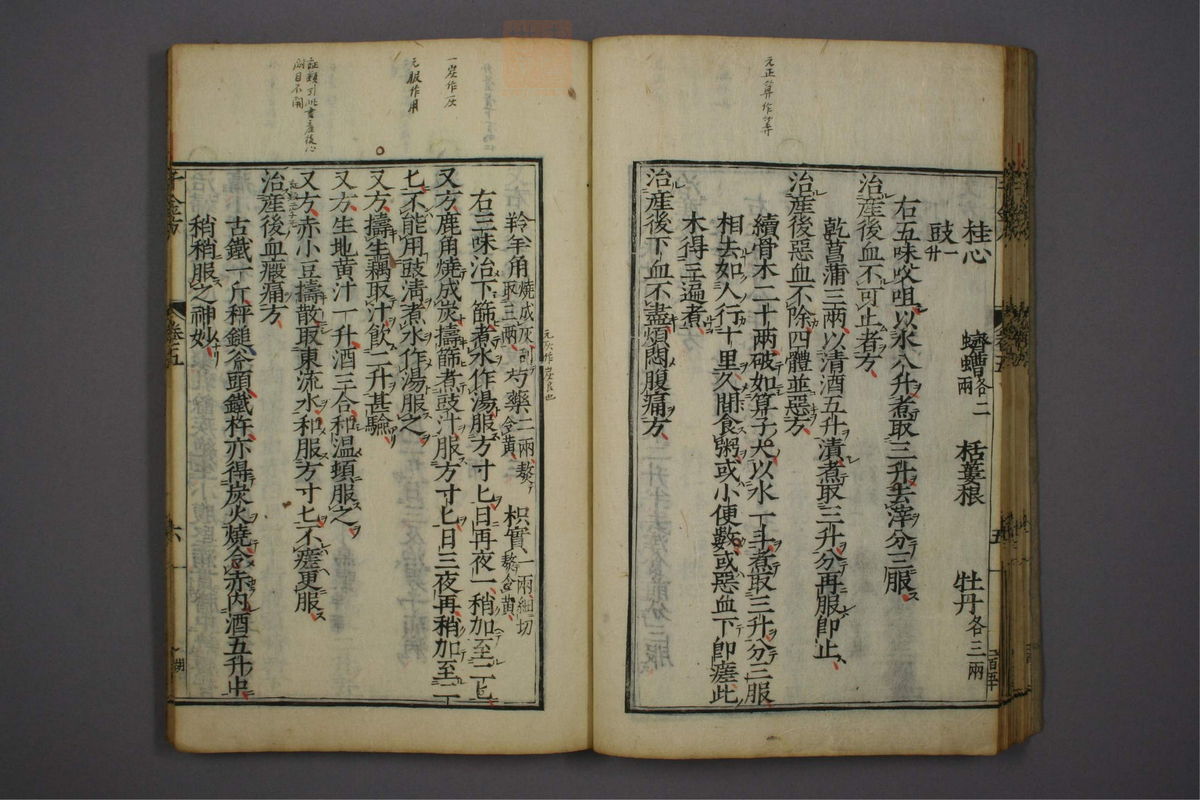 元正算作筭
桂心 蠐螬各二兩 栝蔞根 牡丹各三兩
豉一升
右五味㕮咀以水八升煮取三升去滓分三服
治產後血不可止者方
乾菖蒲三兩以清酒五升漬煮取三升分再服即止
治產後惡血不除四體並惡方
續骨木二十兩破如算子大以水一斗煮取三升分三服
相去如人行十里久間食粥或小便數或惡血下即瘥此
木得三遍煮
治產後下血不盡煩悶腹痛方
羚羊角燒成灰刮取三兩 芍藥二兩熬令黃 枳實一兩細切熬令黃
右三味治下篩煮水作湯服方寸匕日再夜一稍加至二匕
又方鹿角燒成炭擣篩煮豉汁服方寸匕日三夜再稍加至二
匕不能用豉清煮水作湯服之
又方擣生藕取汁飲二升甚驗
又方生地黃汁一升酒三合和溫頓服之
又方赤小豆擣散取東流水和服方寸匕不瘥更服
治產後血瘕痛方
古鐵一斤秤鎚斧頭鐵杵亦得炭火燒令赤內酒五升中
稍稍服之神妙
一炭作灰
元服作用
千金方
卷五
六
五